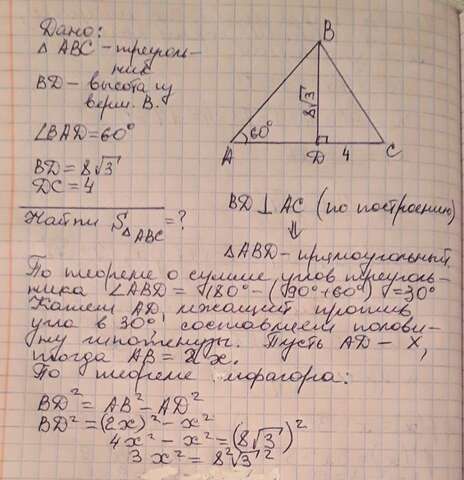 Дано:
△ ABC - треуголь-
ник
BD - высота из
верш. B.
∠BAD = 60°
BD = 8√3
DC = 4
Найти S△ABC = ?
B
8√3
60°
A
D
4
C
BD ⊥ AC (по построению)
⇓
△ABD - прямоугольный.
По теореме о сумме углов треуголь-
ника ∠ABD = 180° - (90° + 60°) = 30°
Катет AD, лежащий против
угла в 30°, составляет полови-
ну гипотенузы. Пусть AD - x,
тогда AB = 2x.
По теореме Пифагора:
BD² = AB² - AD²
BD² = (2x)² - x²
4x² - x² = (8√3)²
3x² = 8²√3²